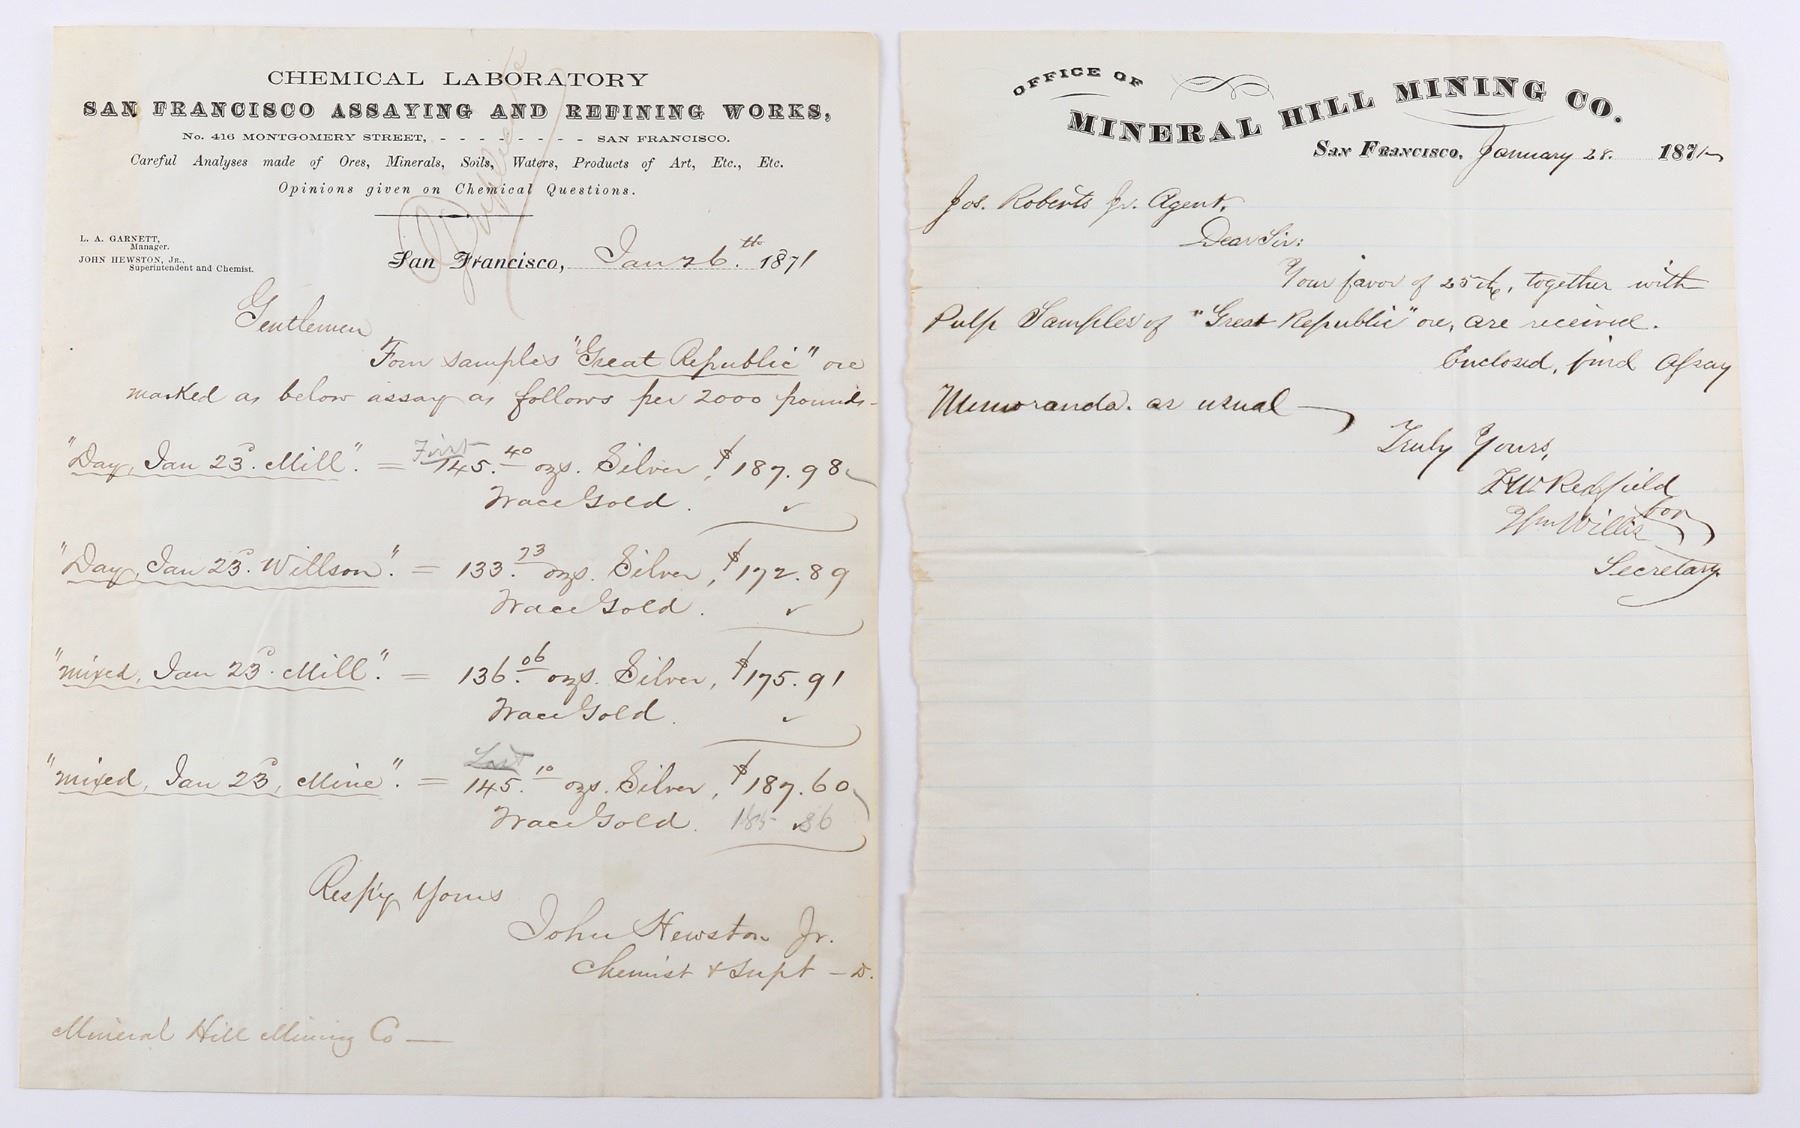 CHEMICAL LABORATORY
SAN FRANCISCO ASSAYING AND REFINING WORKS,
No. 416 MONTGOMERY STREET, - - - - - - - - SAN FRANCISCO.
Careful Analyses made of Ores, Minerals, Soils, Waters, Products of Art, Etc., Etc.
Opinions given on Chemical Questions.
Duplicate
L. A. GARNETT,
Manager.
JOHN HEWSTON, JR.,
Superintendent and Chemist.
San Francisco, Jan 26.th 1871
Gentlemen
Four samples "Great Republic" ore
marked as below assay as follows per 2000 pounds-
First
"Day, Jan 23d. Mill". = 145.40 ozs. Silver, $187.98
Trace Gold. ✓
"Day, Jan 23d. Willson". = 133.73 ozs. Silver, $172.89
Trace Gold. ✓
"mixed, Jan 23d. Mill". = 136.06 ozs. Silver, $175.91
Trace Gold. ✓
Last
"mixed, Jan 23d, Mine". = 145.10 ozs. Silver, $187.60
Trace Gold. 185 ✓ 86
Resp'y Yours
John Hewston Jr.
Chemist & Supt - D.
Mineral Hill Mining Co —
OFFICE OF
MINERAL HILL MINING CO.
San Francisco, January 28. 1871
Jos. Roberts Jr. Agent,
Dear Sir:
Your favor of 25th, together with
Pulp Samples of "Great Republic" ore, are received.
Enclosed, find Assay
Memoranda. as usual —
Truly Yours,
F.W. Redfield
for
Wm Willis
Secretary